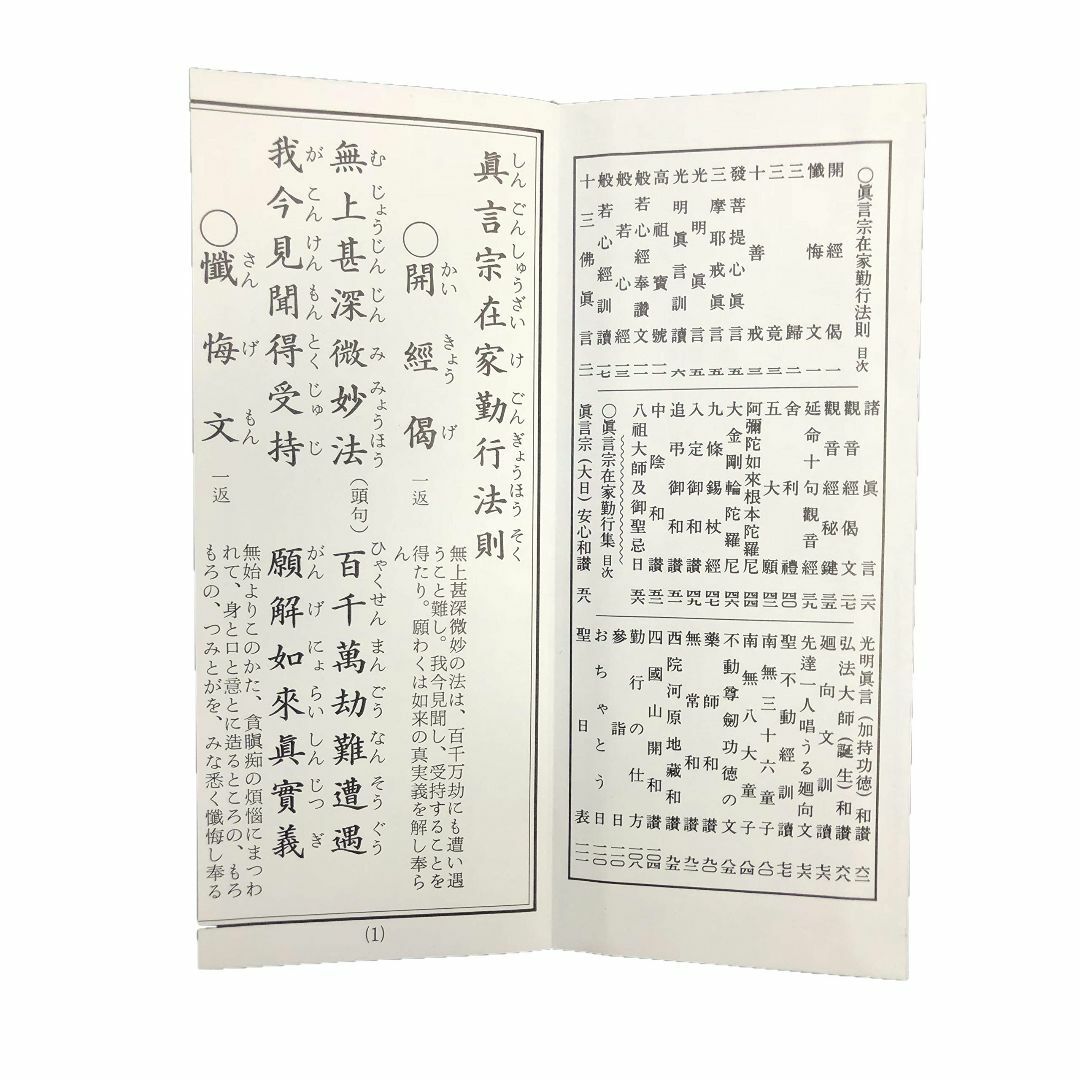 〇眞言宗在家勤行法則 目次
開經偈 一
懺悔文 一
三歸 二
三竟 三
十善戒 三
發菩提心眞言 五
三摩耶戒眞言 五
光明眞言 五
光明眞言訓讀 六
高祖寶號 一一
般若心經奉讚文 一一
般若心經 一三
般若心經訓讀 一七
十三佛眞言 二一
諸眞言 二六
觀音經偈文 二七
觀音經秘鍵 三五
延命十句觀音經 三九
舍利禮 四〇
五大願 四三
阿彌陀如來根本陀羅尼 四四
大金剛輪陀羅尼 四六
九條錫杖經 四七
入定御和讚 四九
追弔御和讚 五一
中陰和讚 五三
八祖大師及御聖忌日 五六
〇眞言宗在家勤行集 目次
眞言宗(大日)安心和讚 五八
光明眞言(加持功徳)和讚 六二
弘法大師(誕生)和讚 六八
廻向文訓讀 七六
先達一人唱うる廻向文 七六
聖不動經訓讀 七七
南無三十六童子 八〇
南無八大童子 八四
不動尊劍功徳の文 八五
藥師和讚 九〇
無常和讚 九三
西院河原地藏和讚 九五
四國山開和讚 一〇四
勤行の仕方 一〇八
參詣日 一一〇
おちゃとう日 一一〇
聖日表 一一一
眞言宗在家勤行法則
しんごんしゅうざいけごんぎょうほうそく
〇開經偈 一返
かいきょうげ
無上甚深微妙の法は、百千万劫にも遭い遇
うこと難し。我今見聞し、受持することを
得たり。願わくは如来の真実義を解し奉ら
ん
無上甚深微妙法(頭句) 百千萬劫難遭遇
むじょうじんじんみみょうほう ひゃくせんまんごうなんそうぐう
我今見聞得受持 願解如來眞實義
がこんけんもんとくじゅじ がんげにょらいしんじつぎ
〇懺悔文 一返
さんげもん
無始よりこのかた、貪瞋痴の煩悩にまつわ
れて、身と口と意とに造るところの、もろ
もろの、つみとがを、みな悉く懺悔し奉る
(1)